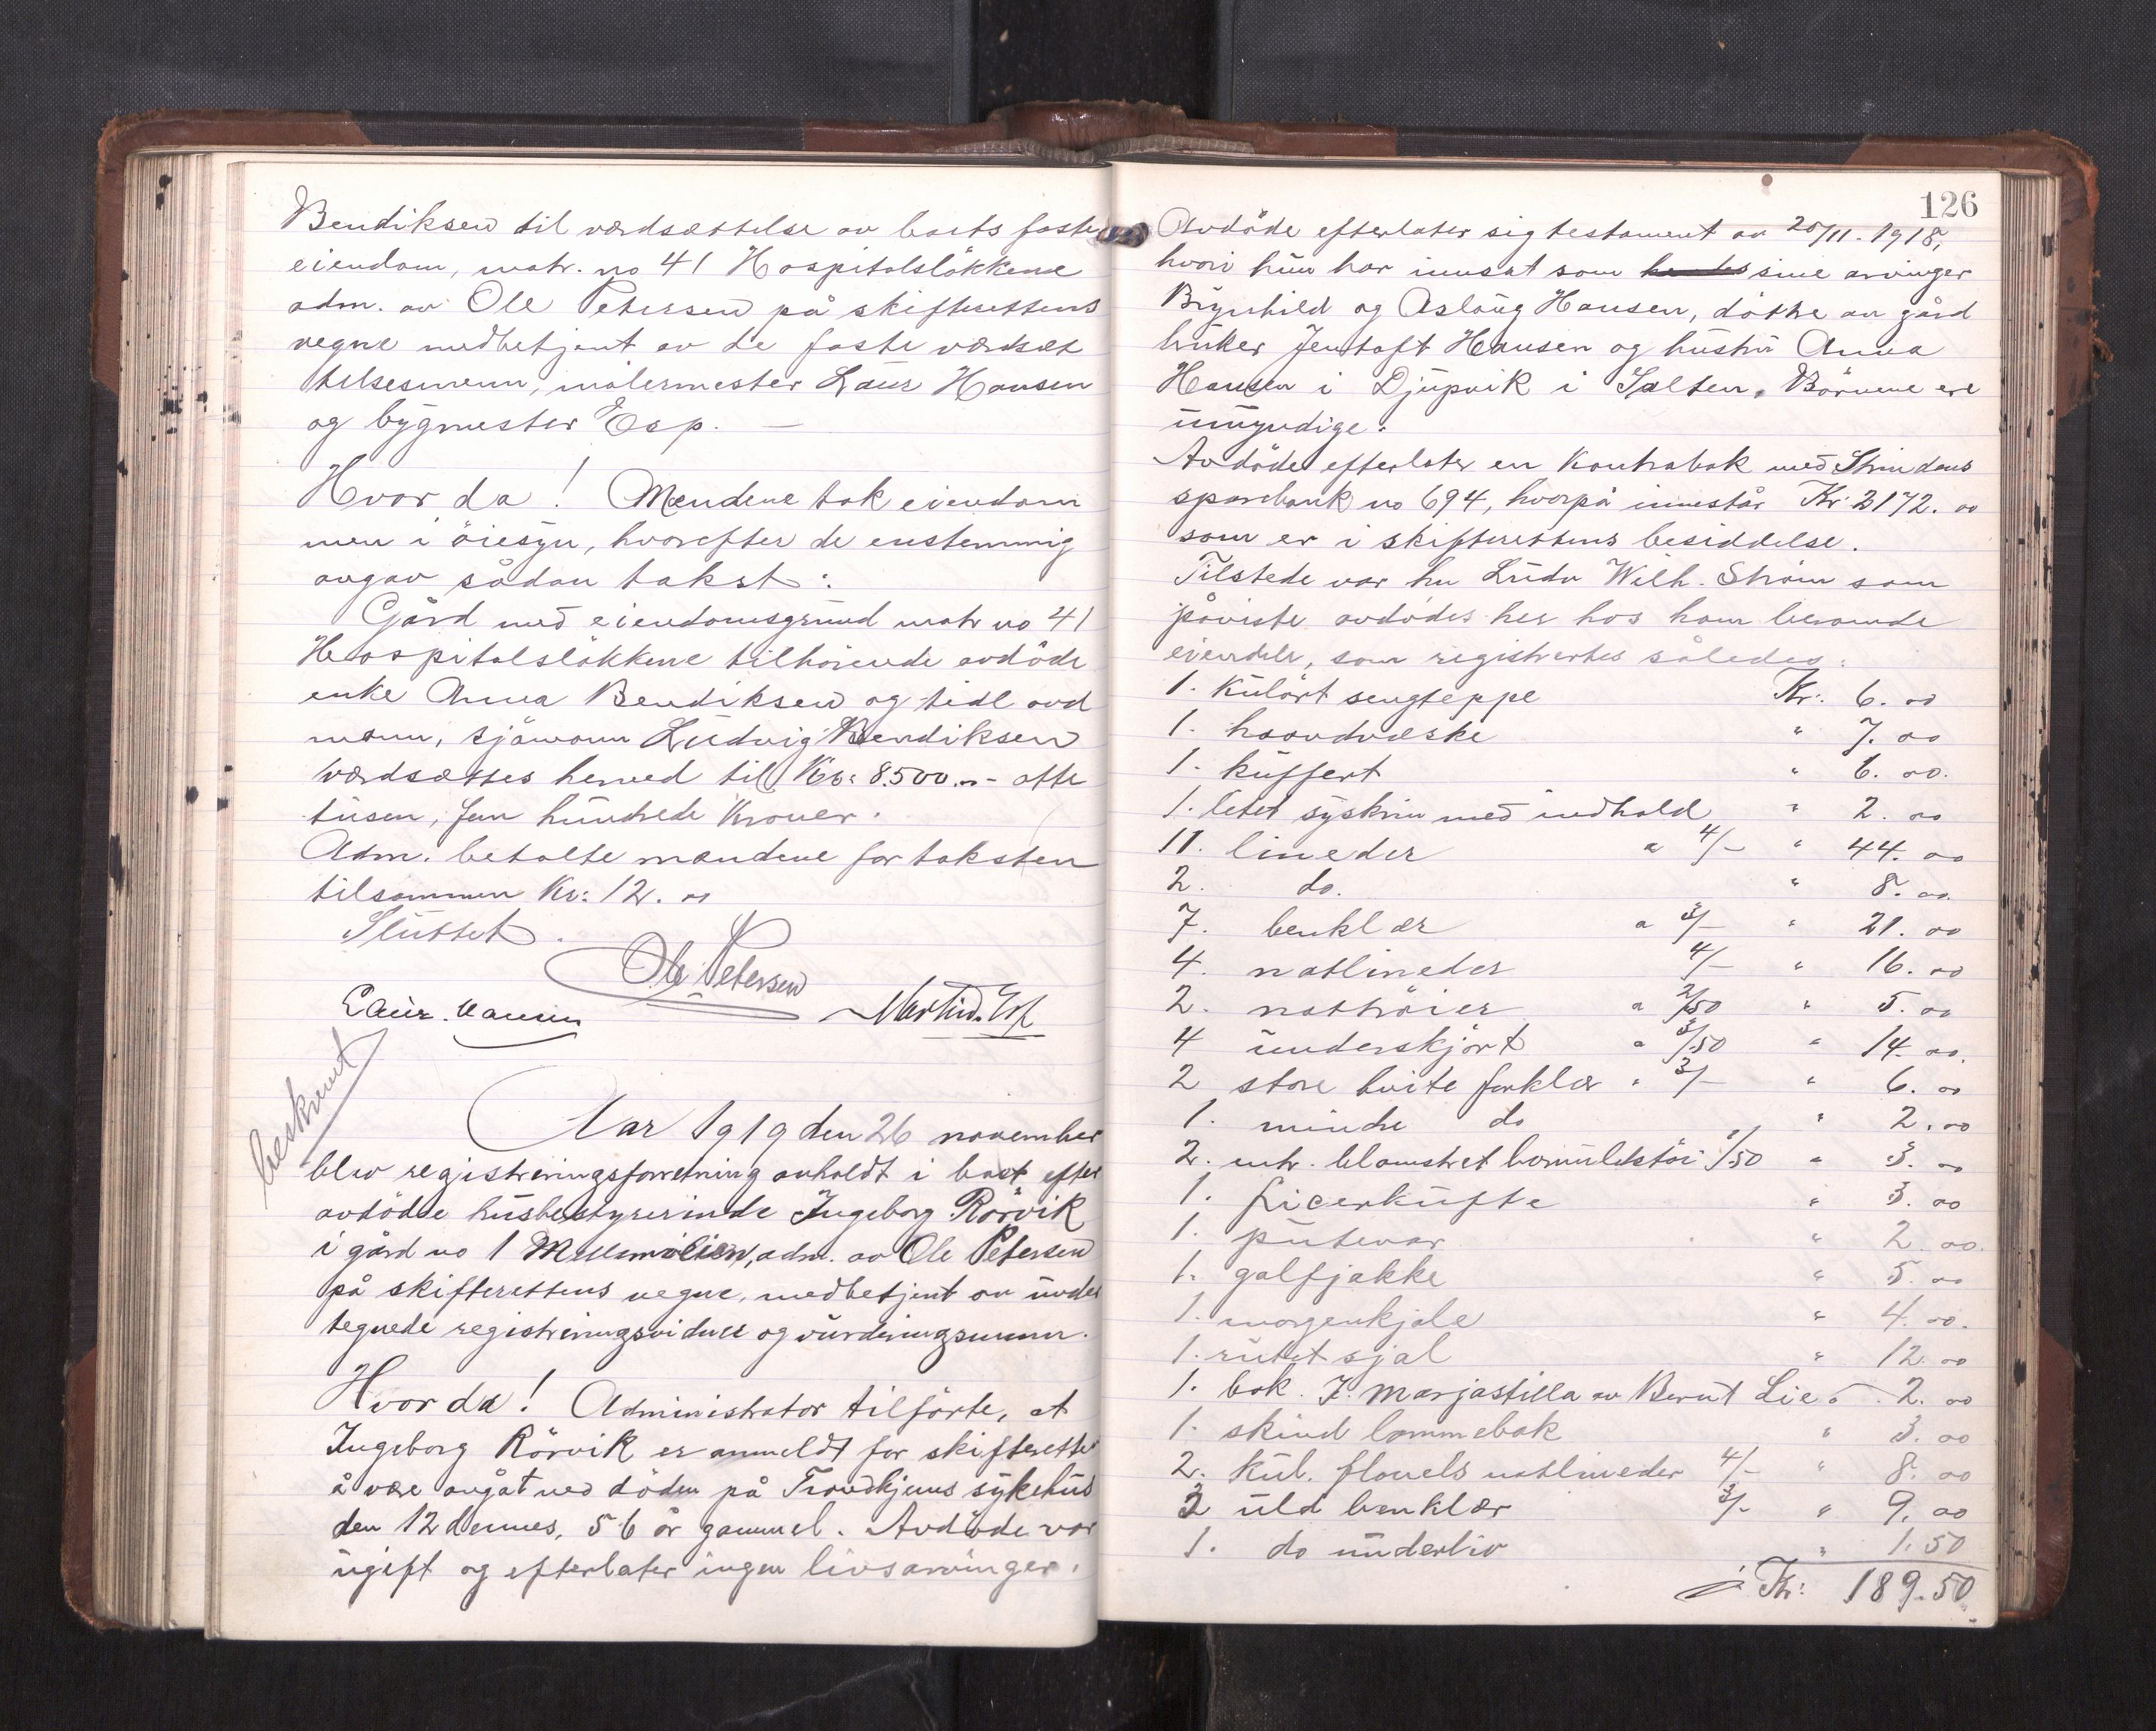 Bendiksen til værdsættelse av boets faste
eiendom, matr. no 41 Hospitalsløkkene
adm. av Ole Petersen på skifterettens
vegne medbetjent av de faste værdsæt
telsesmenn, målermester Laur Hansen
og bygmester Esp. —
Hvor da! Mændene tok eiendom
men i öiesyn, hvorefter de enstemmig
avgav sådan takst:
Gård med eiendomsgrund matr no 41
Hospitalslökkene tilhörende avdöde
enke Anna Bendiksen og tidl avd
mann, sjömann Ludvig Bendiksen
værdsættes herved til Kr: 8.500.- otte
tusen, fem hundrede Kroner.
Adm. betalte mændene for taksten
tilsammen Kr: 12. oo
Sluttet.
Ole Petersen
Laur. Hansen Martin Esp
beskrevet
Aar 1919 den 26 november
blev registreringsforretning avholdt i boet efter
avdödse husbestyrerinde Ingeborg Rörvik
i gård no 1 Mellemilien, adm. av Ole Petersen
på skifterettens vegne, medbetjent av under
tegnede registreringsvidner og vurderingsmenn.
Hvor da! Administrator tilförte, at
Ingeborg Rörvik er anmeldt for skifteretten
å være avgåt ved döden på Trondhjems sykehus
den 12 dennes, 56 år gammel. Avdöde var
ugift og efterlater ingen livsarvinger.
126
Avdöde efterlater sig testament av 20/11. 1918,
hvori hun har innsat som sine arvinger
Brynhild og Aslaug Hansen, döttre av gård
bruker Jentoft Hansen og hustru Anna
Hansen i Djupvik i Salten. Börnene ere
umyndige.
Avdöde efterlater en Kontrabok med Strindens
sparebank no 694, hvorpå innestår Kr 2172. oo
som er i skifterettens besiddelse.
Tilstede var hr Ludv Wilh. Ström som
påviste avdödes her hos ham beroende
eiendeler, som registrertes således:
1. kulört sengteppe Kr: 6. oo
1. haandvæske " 7. oo
1. kuffert " 6. oo.
1. litet syskrin med indhold " 2. oo
11. lineder a 4/- " 44. oo
2. do. " 8. oo
7. benklær a 3/- " 21. oo
4. natlineder 4/- " 16. oo
2. nattröier a 2/50 " 5. oo
4 underskjört a 3/50 " 14. oo.
2 store hvite forklær " 3/- " 6. oo
1. mindre do " 2. oo
2. mtr. blomstret bomuldstöi 1/50 " 3. oo
1. fricerkufte " 3. oo
1. putevar " 2. oo.
1. golfjakke " 5. oo
1. morgenkjole " 4. oo.
1. rutet sjal " 12. oo
1. bok. J. Marjastilla av Bernt Lie " 2. oo
1. skind lommebok " 3. oo
2. kul. flonels natlineder 4/- " 8. oo
3 uld benklær 3/- " 9. oo
1. do underliv " 1. 50
Kr: 189.50